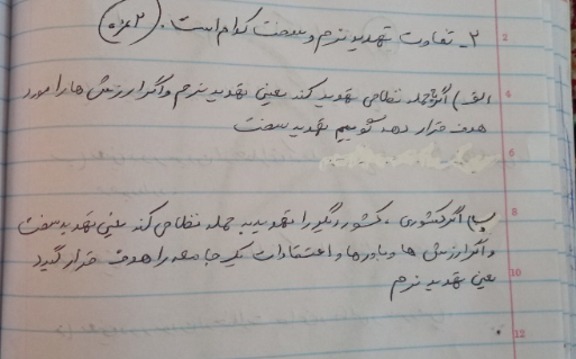 ۲- تفاوت تهدید نرم و سخت کدام است. (۲ نمره)
الف) اگر به حمله نظامی تهدید کند یعنی تهدید نرم و اگر ارزش ها را مورد
هدف قرار دهد گوییم تهدید سخت
ب) اگر کشوری، کشور دیگر را تهدید حمله نظامی کند یعنی تهدید سخت
و اگر ارزش ها و باورها و اعتقادات یک جامعه را هدف قرار گیرد
یعنی تهدید نرم
2
4
6
8
10
12